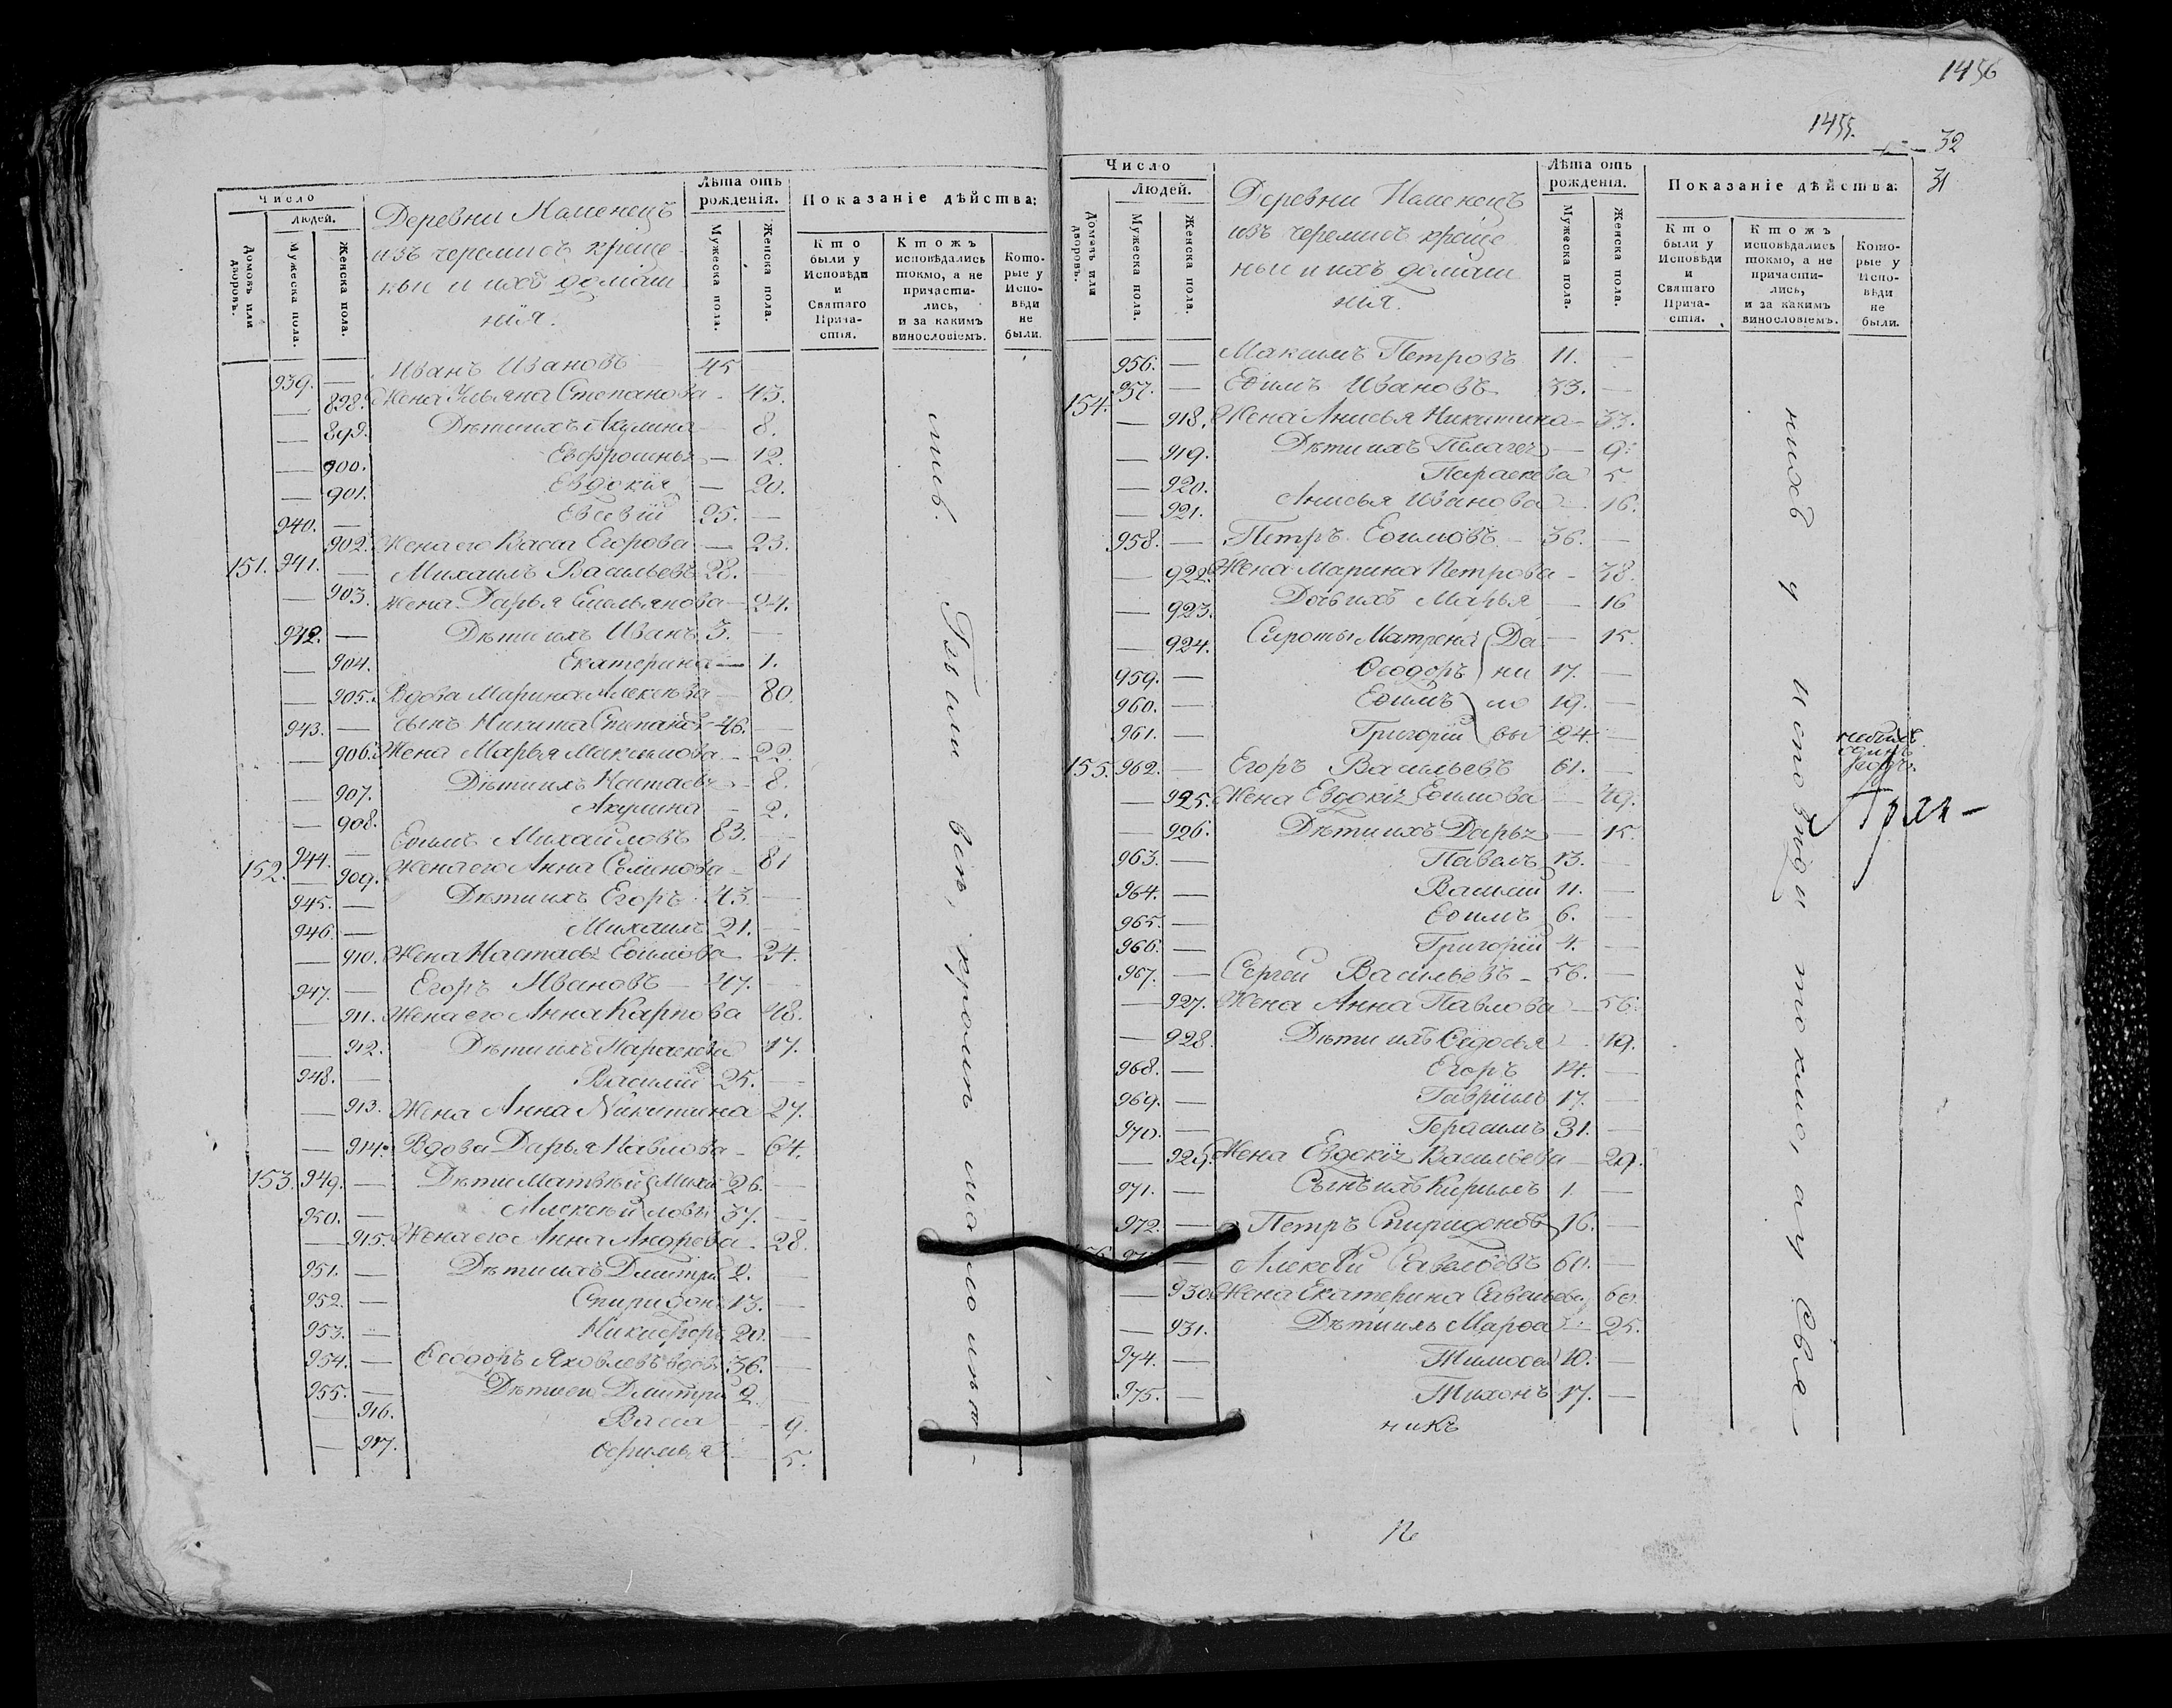 Число
Людей.
Домовъ или дворовъ.
Мужеска пола.
Женска пола.
Деревни Каменецъ
изъ черемисъ креще
ныи и ихъ домаш
нія.
Лѣта отъ рожденія.
Мужеска пола.
Женска пола.
Показаніе дѣйства:
Кто были у Исповѣди и Святаго Причастія.
Ктожъ исповѣдались токмо, а не причастились, и за какимъ винословіемъ.
Которые у Исповѣди не были.
939. — Иванъ Ивановъ 45
— 898. Жена Ульяна Степанова — 43.
— 899. Дѣти ихъ Акулина — 8.
— 900. Евфросинья — 12.
— 901. Евдокія — 20.
940. — Евсевій 25. —
— 902. Жена его Васса Егорова — 23.
151. 941. — Михаилъ Васильевъ 28. —
— 903. Жена Дарья Емельянова — 24.
942. — Дѣти ихъ Иванъ 3. —
— 904. Екатерина — 1.
— 905. Вдова Марина Алексѣева — 80.
943. — сынъ Никита Степановъ 46. —
— 906. Жена Марья Максимова — 22.
— 907. Дѣти ихъ Настасья — 8.
— 908. Акулина — 2.
152. 944. — Еѳимъ Михайловъ 83. —
— 909. Жена его Анна Семенова — 81
945. — Дѣти ихъ Егоръ 43. —
946. — Михаилъ 21. —
— 910. Жена Настасья Еѳимова 24.
947. — Егоръ Ивановъ — 47. —
— 911. Жена его Анна Карпова 48.
— 912. Дѣти ихъ Параскева 17.
948. — Василій 25. —
— 913. Жена Анна Никитина 27.
— 914. Вдова Дарья Павлова — 64.
153. 949. — Дѣти Матвѣй Миха 26. —
950. — Алексѣй ловы 37. —
— 915. Жена его Анна Андреева — 28.
951. — Дѣти ихъ Дмитрій 2. —
952. — Спиридонъ 13. —
953. — Никифоръ 20. —
954. — Ѳеодоръ Яковлевъ вдов. 36. —
955. — Дѣти его Дмитрій 2. —
— 916. Васса — 9.
— 917. — 5.
лив. Были все, кромѣ малолѣт-
1456
1455.
32
31
Число
Людей.
Домовъ или дворовъ.
Мужеска пола.
Женска пола.
Деревни Каменецъ
изъ черемисъ креще
ныи и ихъ домаш
нія.
Лѣта отъ рожденія.
Мужеска пола.
Женска пола.
Показаніе дѣйства:
Кто были у Исповѣди и Святаго Причастія.
Ктожъ исповѣдались токмо, а не причастились, и за какимъ винословіемъ.
Которые у Исповѣди не были.
956. — Максимъ Петровъ 11. —
154. 957. — Еѳимъ Ивановъ 33. —
— 918. Жена Анисья Никитина — 33.
— 919. Дѣти ихъ Пелагея — 9.
— 920. Параскева 5.
— 921. Анисья Иванова — 16.
958. — Петръ Еѳимовъ — 36. —
— 922. Жена Марина Петрова — 38.
— 923. Дочь ихъ Марья — 16
— 924. Сироты Матрена Да — 15.
959. — Ѳеодоръ ни 17. —
960. — Еѳимъ ло 19. —
961. — Григорій вы 24. —
155. 962. — Егоръ Васильевъ 61. —
— 925. Жена Евдокія Еѳимова — 49.
— 926. Дѣти ихъ Дарья — 15.
963. — Павелъ 13. —
964. — Василій 11. —
965. — Еѳимъ 6. —
966. — Григорій 4. —
967. — Сергей Васильевъ — 56. —
— 927. Жена Анна Павлова — 56.
— 928. Дѣти ихъ Ѳедосья — 19.
968. — Егоръ 14. —
969. — Гавріилъ 17. —
970. — Герасимъ 31. —
— 929. Жена Евдокія Васильева — 29.
971. — Сынъ ихъ Кирилъ 1. —
972. — Петръ Спиридоновъ 16. —
— Алексѣй 60. —
— 930. Жена Екатерина Савельева 60.
— 931. Дѣти ихъ Марѳа — 25.
974. — Тимоѳей 10. —
975. — Тихонъ 17. —
нихъ у исповѣди токмо, а у Свя-
одинъ
никъ